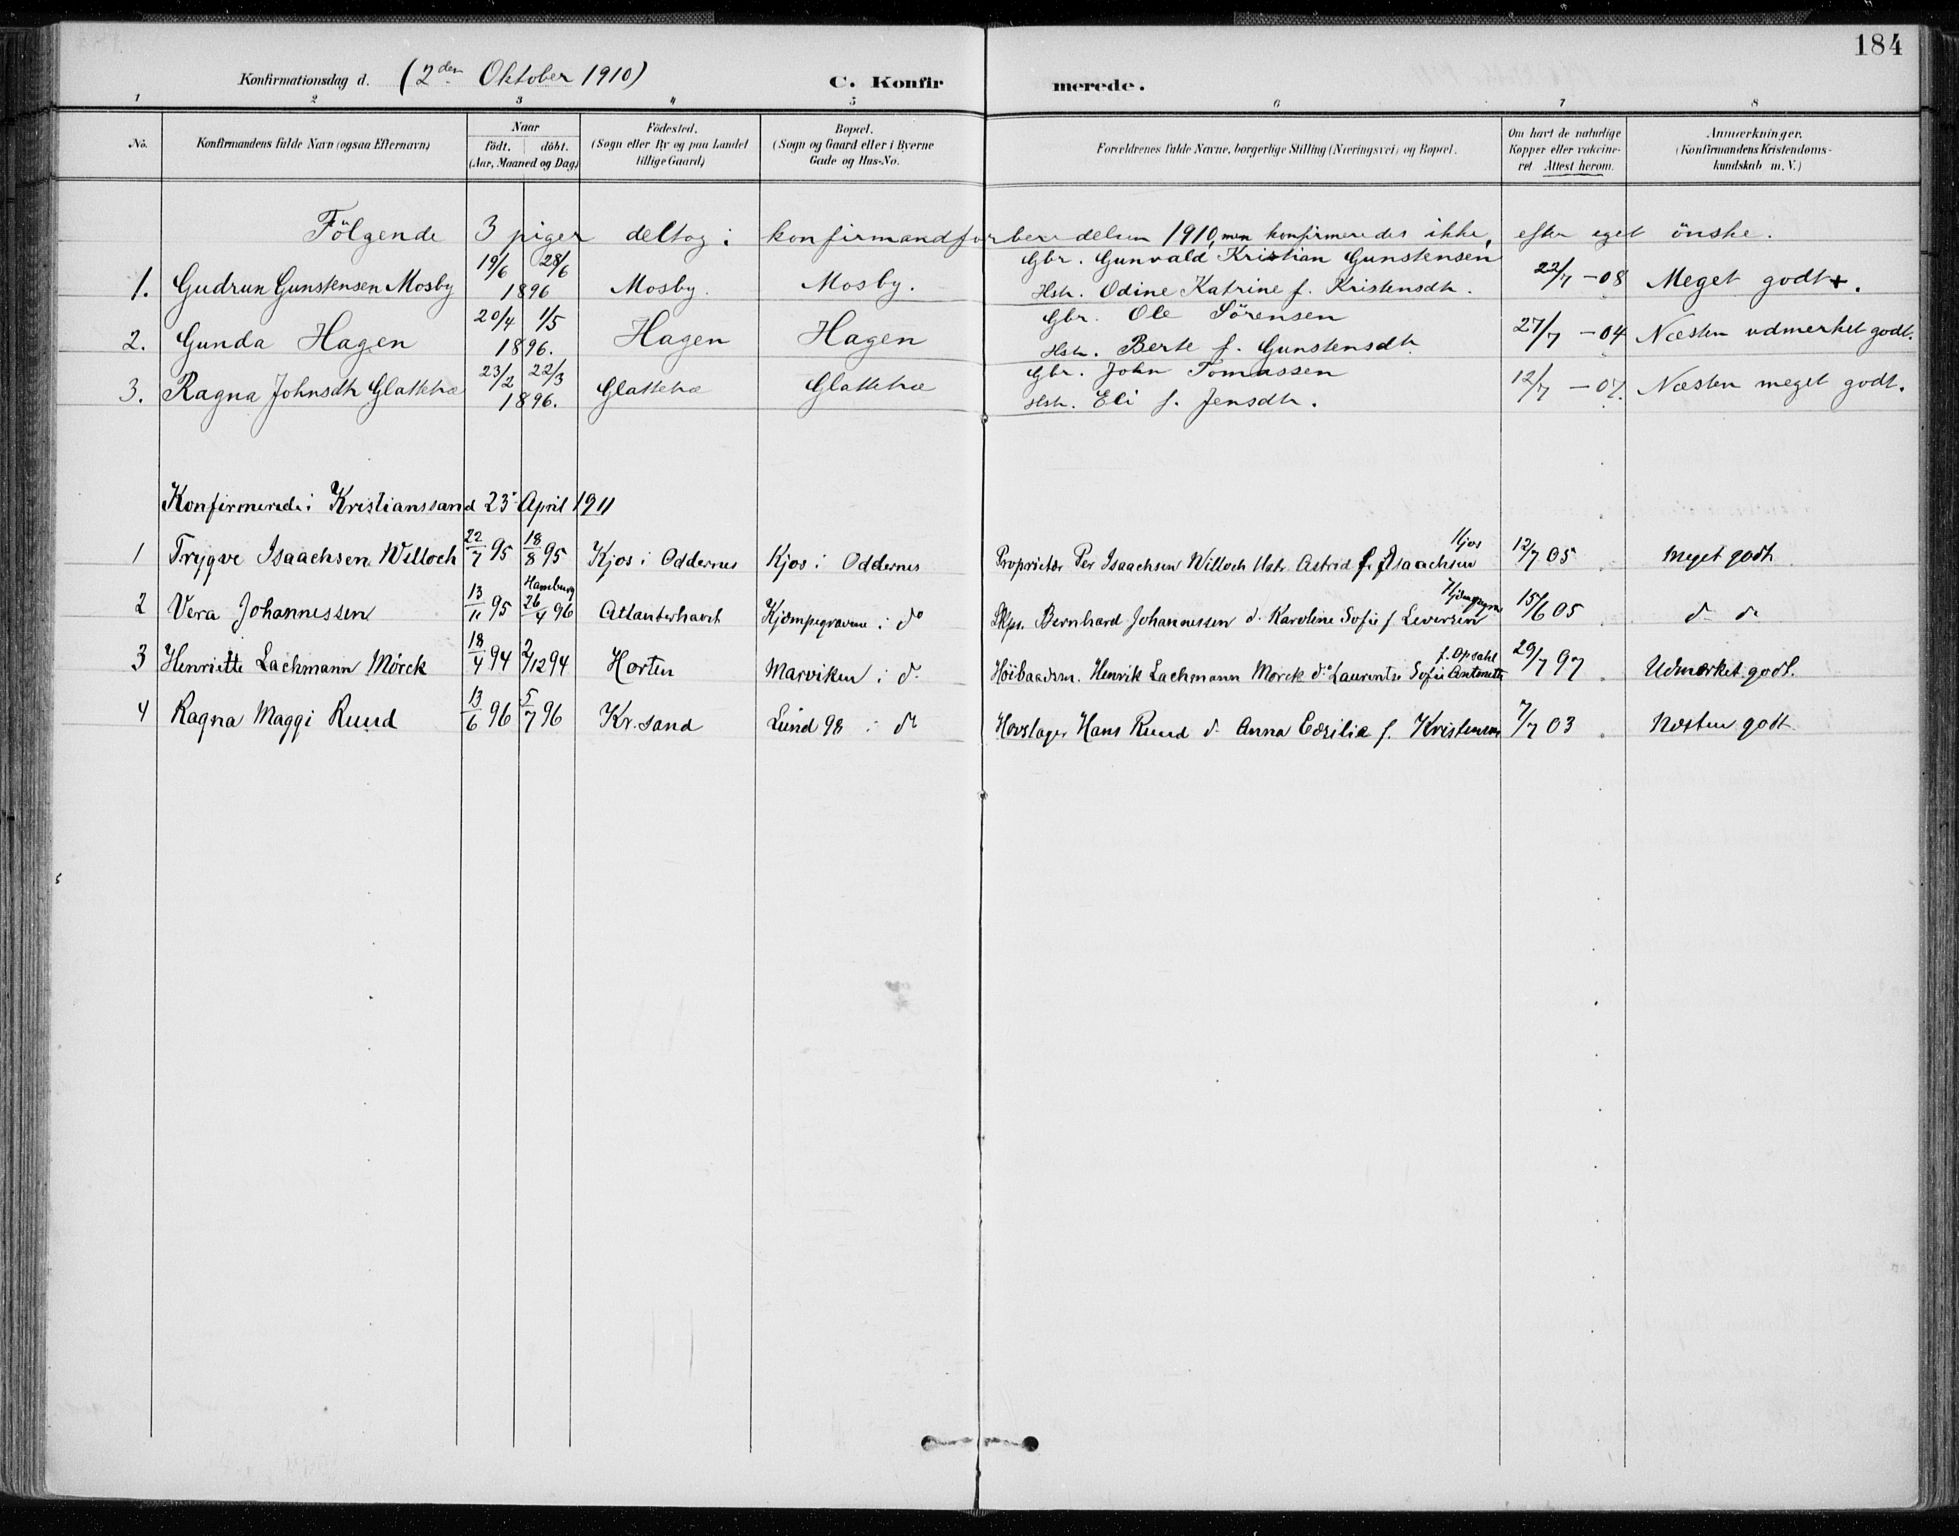 184
Konfirmationsdag d. (2den Oktober 1910) C. Konfirmerede.
1 2 3 4 5 6 7 8
No. Konfirmandens fulde Navn (ogsaa Efternavn) Naar födt. döbt. (Aar, Maaned og Dag) Födested. (Sogn eller By og paa Landet tillige Gaard) Bopæl. (Sogn og Gaard eller i Byerne Gade og Hus-No. Forældrenes fulde Navne, borgerlige Stilling (Næringsvei) og Bopæl. Om havt de naturlige Kopper eller vakcineret Attest herom. Anmærkninger. (Konfirmandens Kristendomskundskab m. V.)
Fölgende 3 piger deltog i konfirmandforberedelsen 1910, men konfirmeredes ikke, efter eget önske.
1. Gudrun Gunstensen Mosby 19/6 28/6 1896 Mosby. Mosby. Gbr. Gunvald Kristian Gunstensen Hstr. Odine Katrine f. Kristensdtr. 22/7 - 08 Meget godt+.
2. Gunda Hagen 20/4 1/5 1896. Hagen Hagen Gbr. Ole Sörensen Hstr. Berte f. Gunstensdtr 27/7 - 04 Næsten udmerket godt.
3. Ragna Johnsdtr Glattetræ 23/2 22/3 1896. Glattetræ Glattetræ Gbr. John Tomassen Hstr. Eli f. Jensdtr. 12/7 - 07. Næsten meget godt.
Konfirmerede i Kristianssand 23' April 1911
1 Trygve Isaachsen Willoch 22/7 95 18/8 95 Kjos i Oddernes Kjos i Oddernes Proprietær Per Isaachsen Willoch Hstr. Astrid f. Isaachsen Kjos 12/7 05 Meget godt
2 Vera Johannessen 13/11 95 Hamburg 26/4 96 Atlanterhavet Kjæmpegravene i do Skpr. Bernhard Johannessen d. Karoline Sofie f Leversen 15/6 05 do do
3 Henriette Lachmann Mörck 18/4 94 2/12 94 Horten Marviken i do Höibaadsm. Henrik Lachmann Mörck do Laurentse Sofie Antonette f. Opsahl 29/7 97 Udmærket godt.
4 Ragna Maggi Ruud 13/6 96 5/7 96 Kr.sand Lund 98 i do Hovslager Hans Ruud d. Anna Cæsilie f. Kristensen 7/7 03 Næsten godt